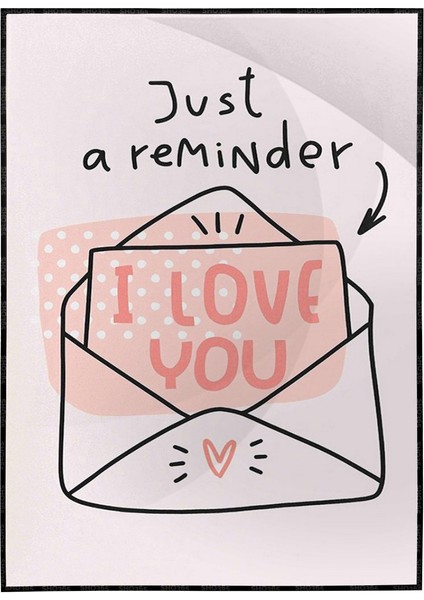 Just
a reminder
I LOVE
YOU